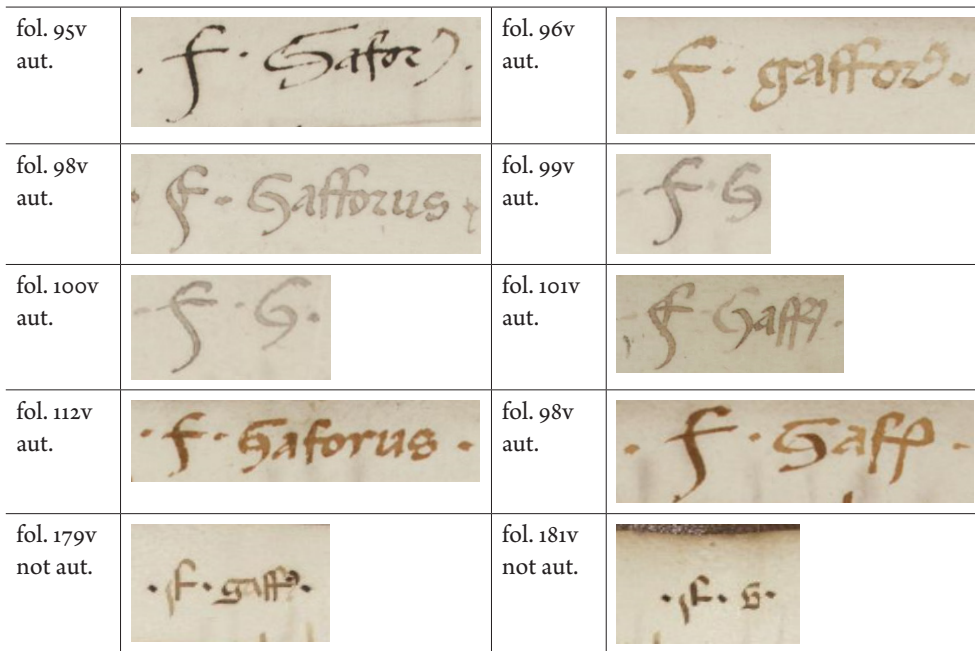 fol. 95v
aut.
· f · Gafor) ·
fol. 96v
aut.
· f · gaffor ·
fol. 98v
aut.
· f · Gafforus ·
fol. 99v
aut.
f G
fol. 100v
aut.
· f · G ·
fol. 101v
aut.
f Gaff ·
fol. 112v
aut.
· f · Gaforus ·
fol. 98v
aut.
· f · Gaff ·
fol. 179v
not aut.
· f · gaff ·
fol. 181v
not aut.
· f · G ·